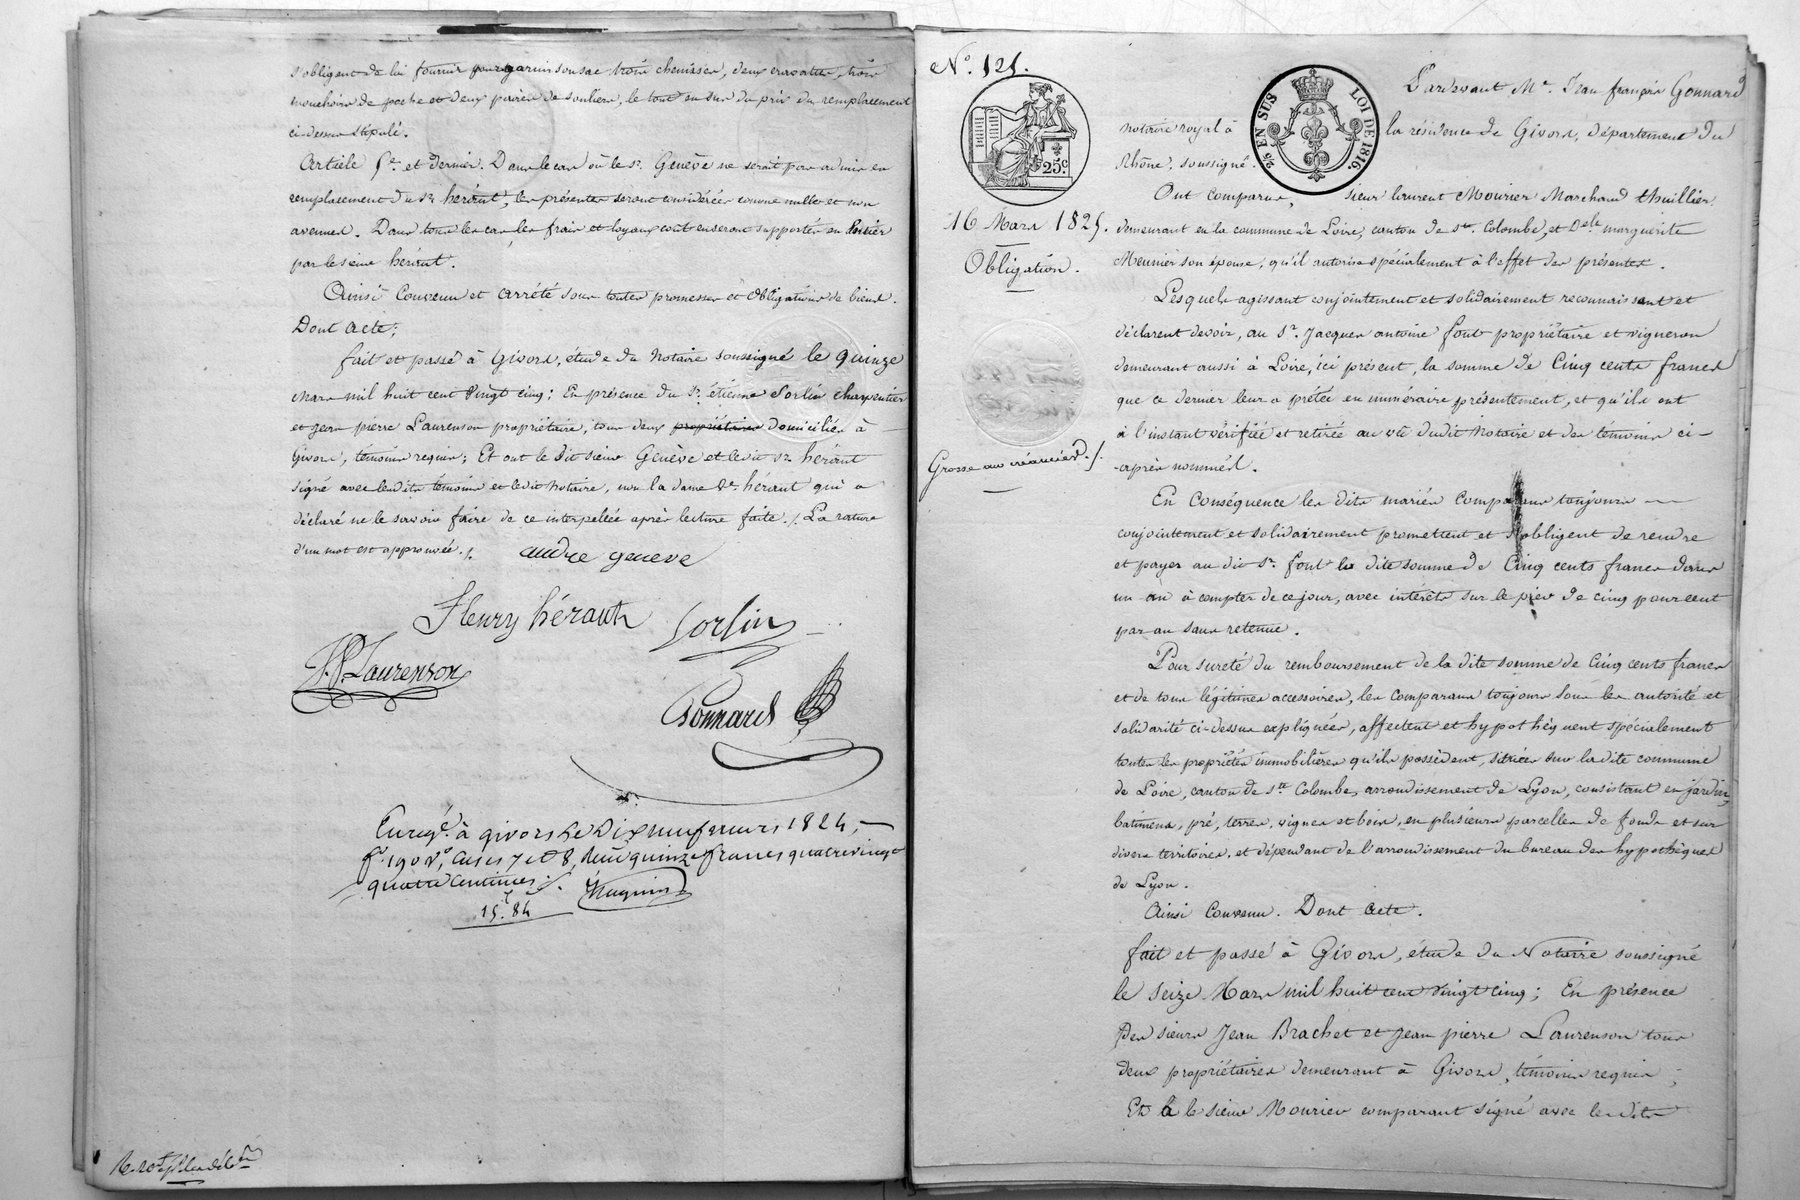 s'obligent de lui fournir pour garnir son sac trois chemises, deux cravattes, trois
mouchoirs de poche et deux paires de souliers, le tout en sus du prix du remplacement
ci-dessus stipulé.
Article 5e. et dernier. Dans le cas où le sr. Genève ne serait pas admis en
remplacement du sr. héraut, les présentes seront considérées comme nulles et non
avenues. Dans tous les cas les frais et loyaux coût en seront supportés en entier
par le sieur héraut.
Ainsi Convenu et arrété sous toutes promesses et obligations de biens.
Dont acte;
fait et passé à Givors, étude du notaire soussigné le quinze
mars mil huit cent vingt cinq; En présence du Sr. étienne Sorlin charpentier
et jean pierre Laurenson propriétaire, tous deux propriétaires domiciliés à
Givors, témoins requis; Et ont le dit sieur Genève et ledit sr. héraut
signé avec lesdits témoins et ledit notaire, non la dame Ve. héraut qui a
déclaré ne le savoir faire de ce interpellée après lecture faite ./. La rature
d'un mot est approuvée ./.
andre geneve
Fleury héraut
Sorlin
J.P. Laurenson
Gonnard
Enregé. à givors le Dix neuf mars 1825,
fo. 190 Vo. cases 7 et 8, Reçu quinze francs quatrevingt
quatre centimes ./.
15f. 84
No. 125.
25 c.
25 EN SUS
LOI DE 1816.
16 Mars 1825.
Obligation.
Grosse au créancier ./.
Pardevant Me. Jean françois Gonnard
notaire royal à la résidence de Givors, département du
Rhône, soussigné.
Ont comparus, sieur laurent Mourier Marchand thuillier,
demeurant en la commune de Loire, canton de ste. Colombe, et Delle marguerite
Meunier son épouse, qu'il autorise spécialement à l'effet des présentes.
Lesquels agissant conjointement et solidairement reconnaissent et
déclarent devoir, au sr. Jacques antoine font propriétaire et vigneron
demeurant aussi à Loire, ici présent, la somme de Cinq cents francs
que ce dernier leur a prétée en numéraire présentement, et qu'ils ont
à l'instant vérifiée et retirée au vû dudit Notaire et des témoins ci-
après nommés.
En conséquence les dits mariés comparans toujours
conjointement et solidairement promettent et s'obligent de rendre
et payer au dit sr. font la dite somme de Cinq cents francs dans
un an à compter de ce jour, avec intérêts sur le pied de cinq pour cent
par an sans retenue.
Pour sureté du remboursement de la dite somme de Cinq cents francs
et de tous légitimes accessoires, les comparans toujours sous les autorité et
solidarité ci-dessus expliquées, affectent et hypothéquent spécialement
toutes les propriétés immobilières qu'ils possèdent, situées sur la dite commune
de Loire, canton de ste. Colombe, arrondissement de Lyon, consistant en jardin,
batimens, pré, terres, vignes et bois, en plusieurs parcelles de fonds et sur
divers territoires, et dépendant de l'arrondissement du bureau des hypothèques
de Lyon.
Ainsi Convenu. Dont acte.
fait et passé à Givors, étude du Notaire soussigné
le seize Mars mil huit cent vingt cinq; En présence
Des sieurs Jean Brachet et jean pierre Laurenson tous
deux propriétaires demeurant à Givors, témoins requis;
Et a le sieur Mourier comparant signé avec lesdits